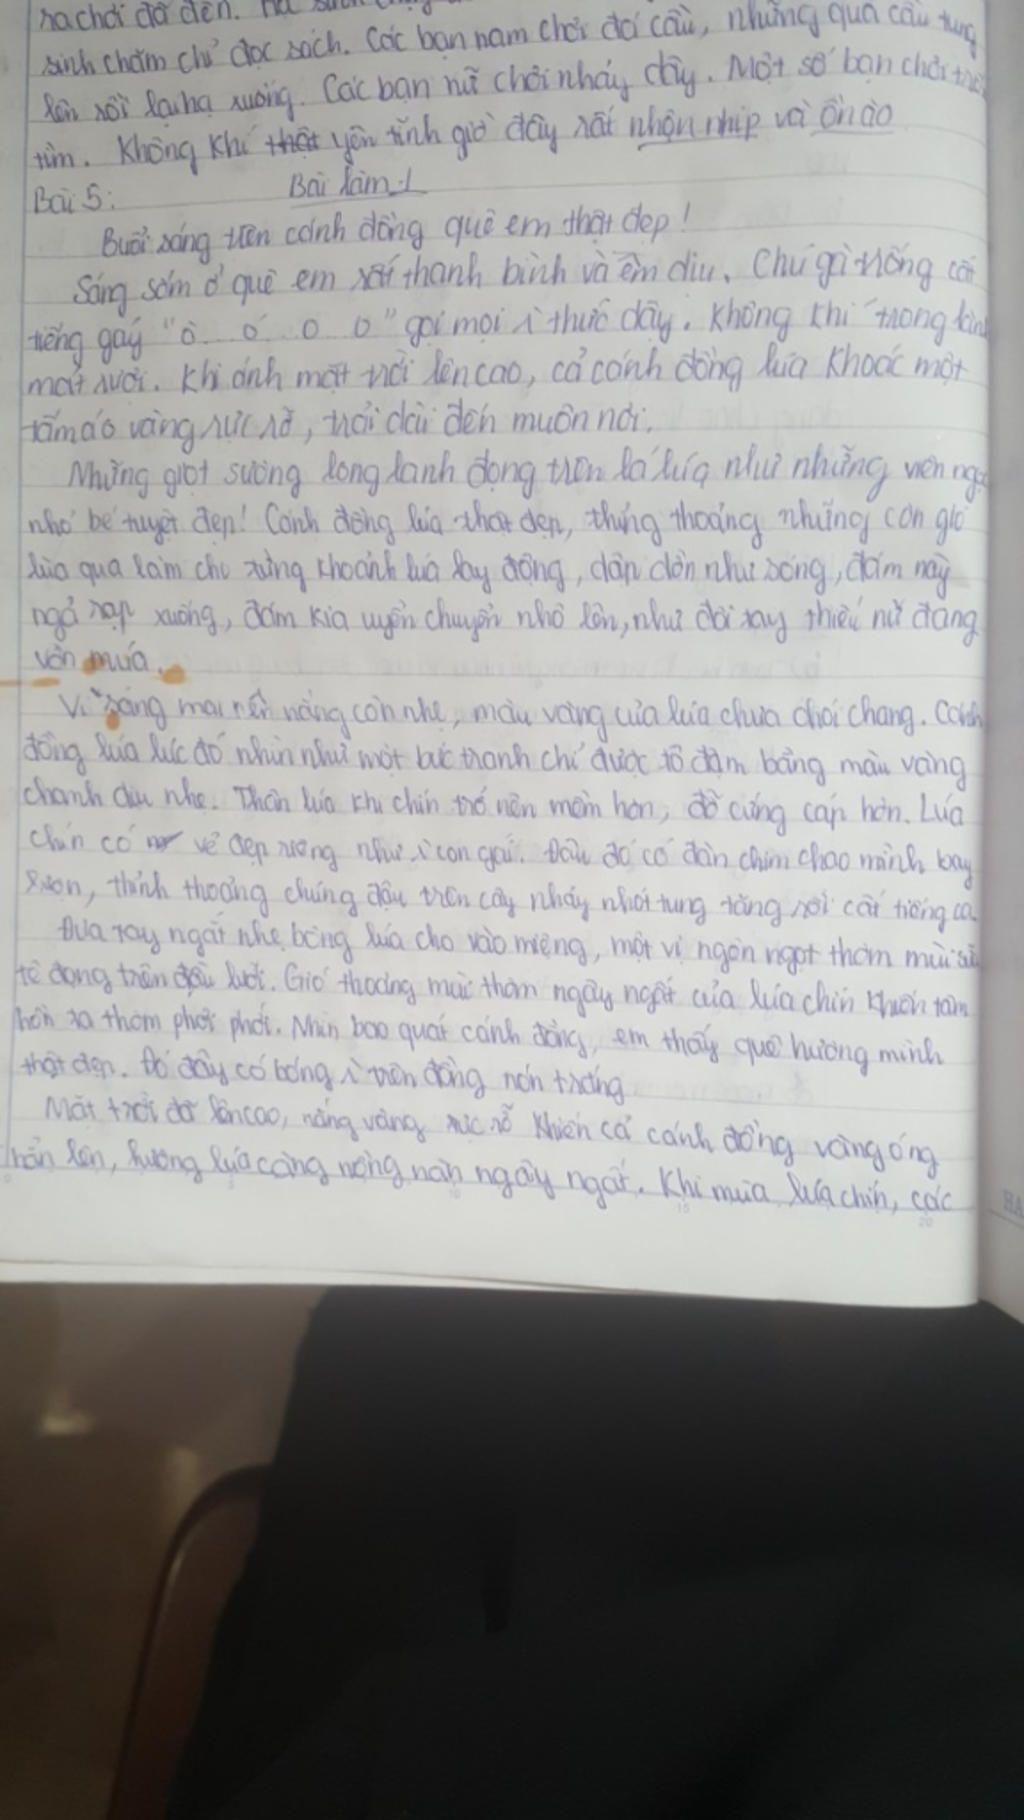 ra chơi đã đến.
sinh chăm chỉ đọc sách. Các bạn nam chơi đá cầu, những quả cầu tung
lên rồi lại hạ xuống. Các bạn nữ chơi nhảy dây. Một số bạn chơi trốn
tìm. Không khí thật yên tĩnh giờ đây rất nhộn nhịp và ồn ào
Bài 5: Bài làm 1
Buổi sáng trên cánh đồng quê em thật đẹp!
Sáng sớm ở quê em rất thanh bình và êm dịu. Chú gà trống cất
tiếng gáy "ò ó o o" gọi mọi ì thức dậy. Không khí trong lành
mát rượi. Khi ánh mặt trời lên cao, cả cánh đồng lúa khoác một
tấm áo vàng rực rỡ, trải dài đến muôn nơi.
Những giọt sương long lanh đọng trên lá lúa như những viên ngọc
nhỏ bé tuyệt đẹp! Cánh đồng lúa thật đẹp, thỉng thoảng những cơn gió
lùa qua làm cho từng khoảnh lúa lay động, dập dờn như sóng, đám này
ngả rạp xuống, đám kia uyển chuyển nhô lên, như đôi tay thiếu nữ đang
vờn múa.
Vì sáng mai nên nắng còn nhẹ, màu vàng của lúa chưa chói chang. Cánh
đồng lúa lúc đó nhìn như một bức tranh chỉ được tô đậm bằng màu vàng
chanh dịu nhẹ. Thân lúa khi chín trở nên mềm hơn, đỡ cứng cáp hơn. Lúa
chín có vẻ đẹp riêng như ì con gái. Đâu đó có đàn chim chao mình bay
lượn, thỉnh thoảng chúng đậu trên cây nhảy nhót tung tăng rồi cất tiếng ca.
Đưa tay ngắt nhẹ bông lúa cho vào miệng, một vị ngòn ngọt thơm mùi sữa
tê đọng trên đầu lưỡi. Gió thoảng mùi thơm ngây ngất của lúa chín khiến tâm
hồn ta thơm phơi phới. Nhìn bao quát cánh đồng, em thấy quê hương mình
thật đẹp. Đó đây có bóng ì trên đồng nón trắng
Mặt trời đã lên cao, nắng vàng rực rỡ khiến cả cánh đồng vàng óng
hẳn lên, hương lúa càng nồng nàn ngây ngất. Khi mùa lúa chín, các